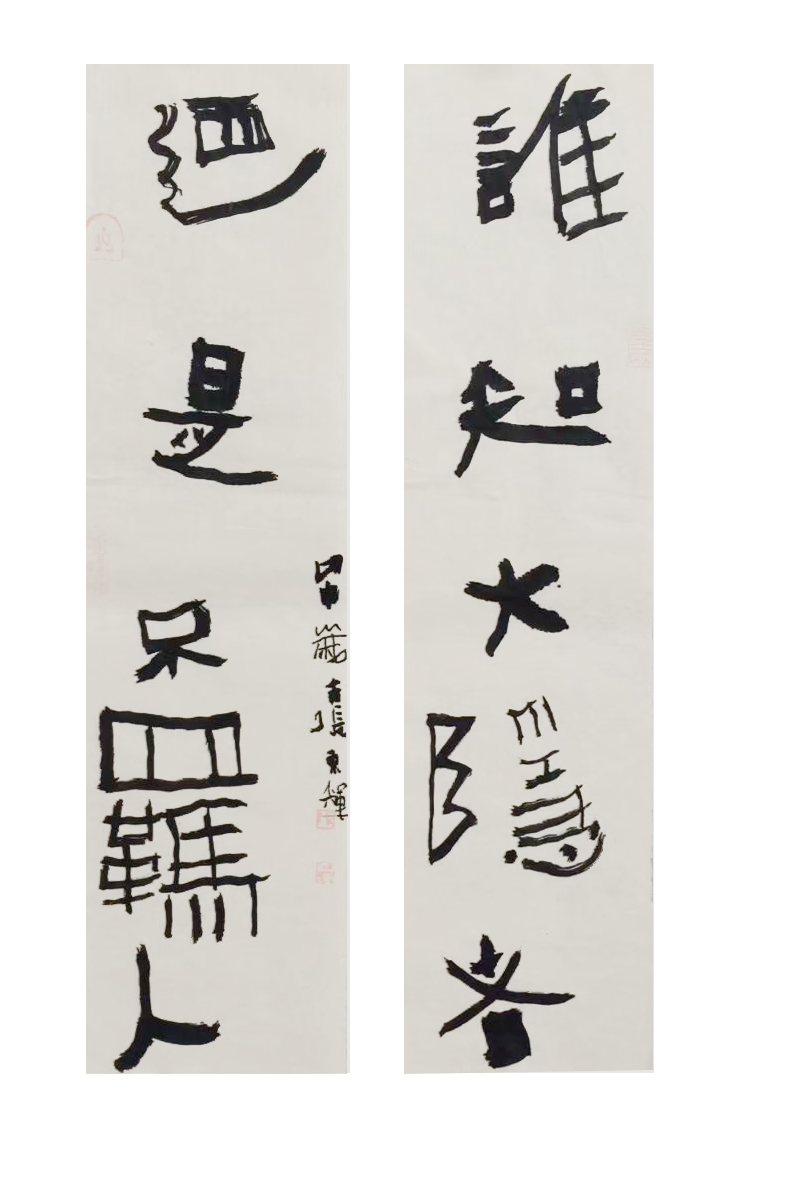 誰知大隱者
迺是不羈人
張東輝